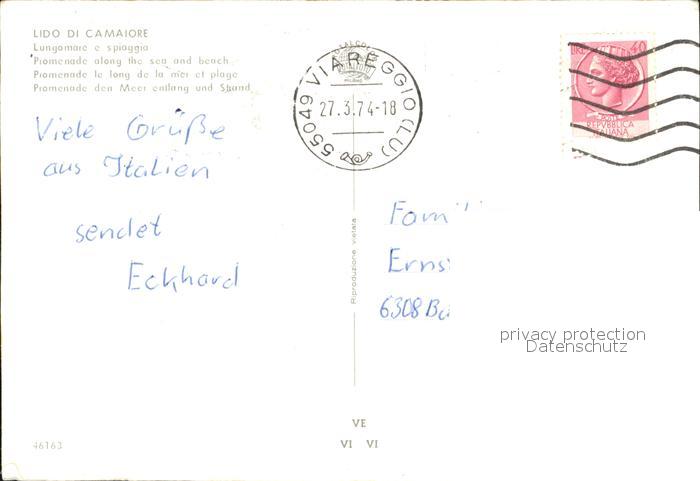 LIDO DI CAMAIORE
Lungomare e spiaggia
Promenade along the sea and beach
Promenade le long de la mer et plage
Promenade den Meer entlang und Strand
55049 VIAREGGIO (LU)
27.3.74-18
LIRE 40
POSTE
REPVBBLICA
ITALIANA
Viele Grüße
aus Italien
sendet
Eckhard
Riproduzione vietata
Fami
Erns
6308 Bu
privacy protection
Datenschutz
VE
VI VI
46163